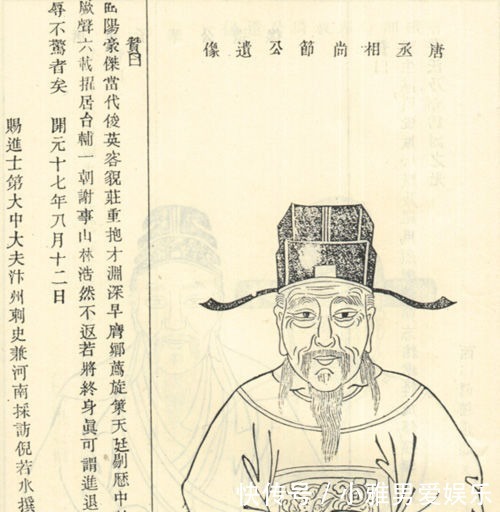 唐丞相尚節公遺像
贊曰
陽豪傑當代俊英容貌莊重抱才淵深早膺鄉薦旋策天廷剔歷中
厥聲六載擢居台輔一朝謝事山林浩然不返若將終身眞可謂進退
辱不驚者矣　開元十七年八月十二日
賜進士第大中大夫汴州刺史兼河南採訪倪若水撰
快传号/小雅男爱娱乐